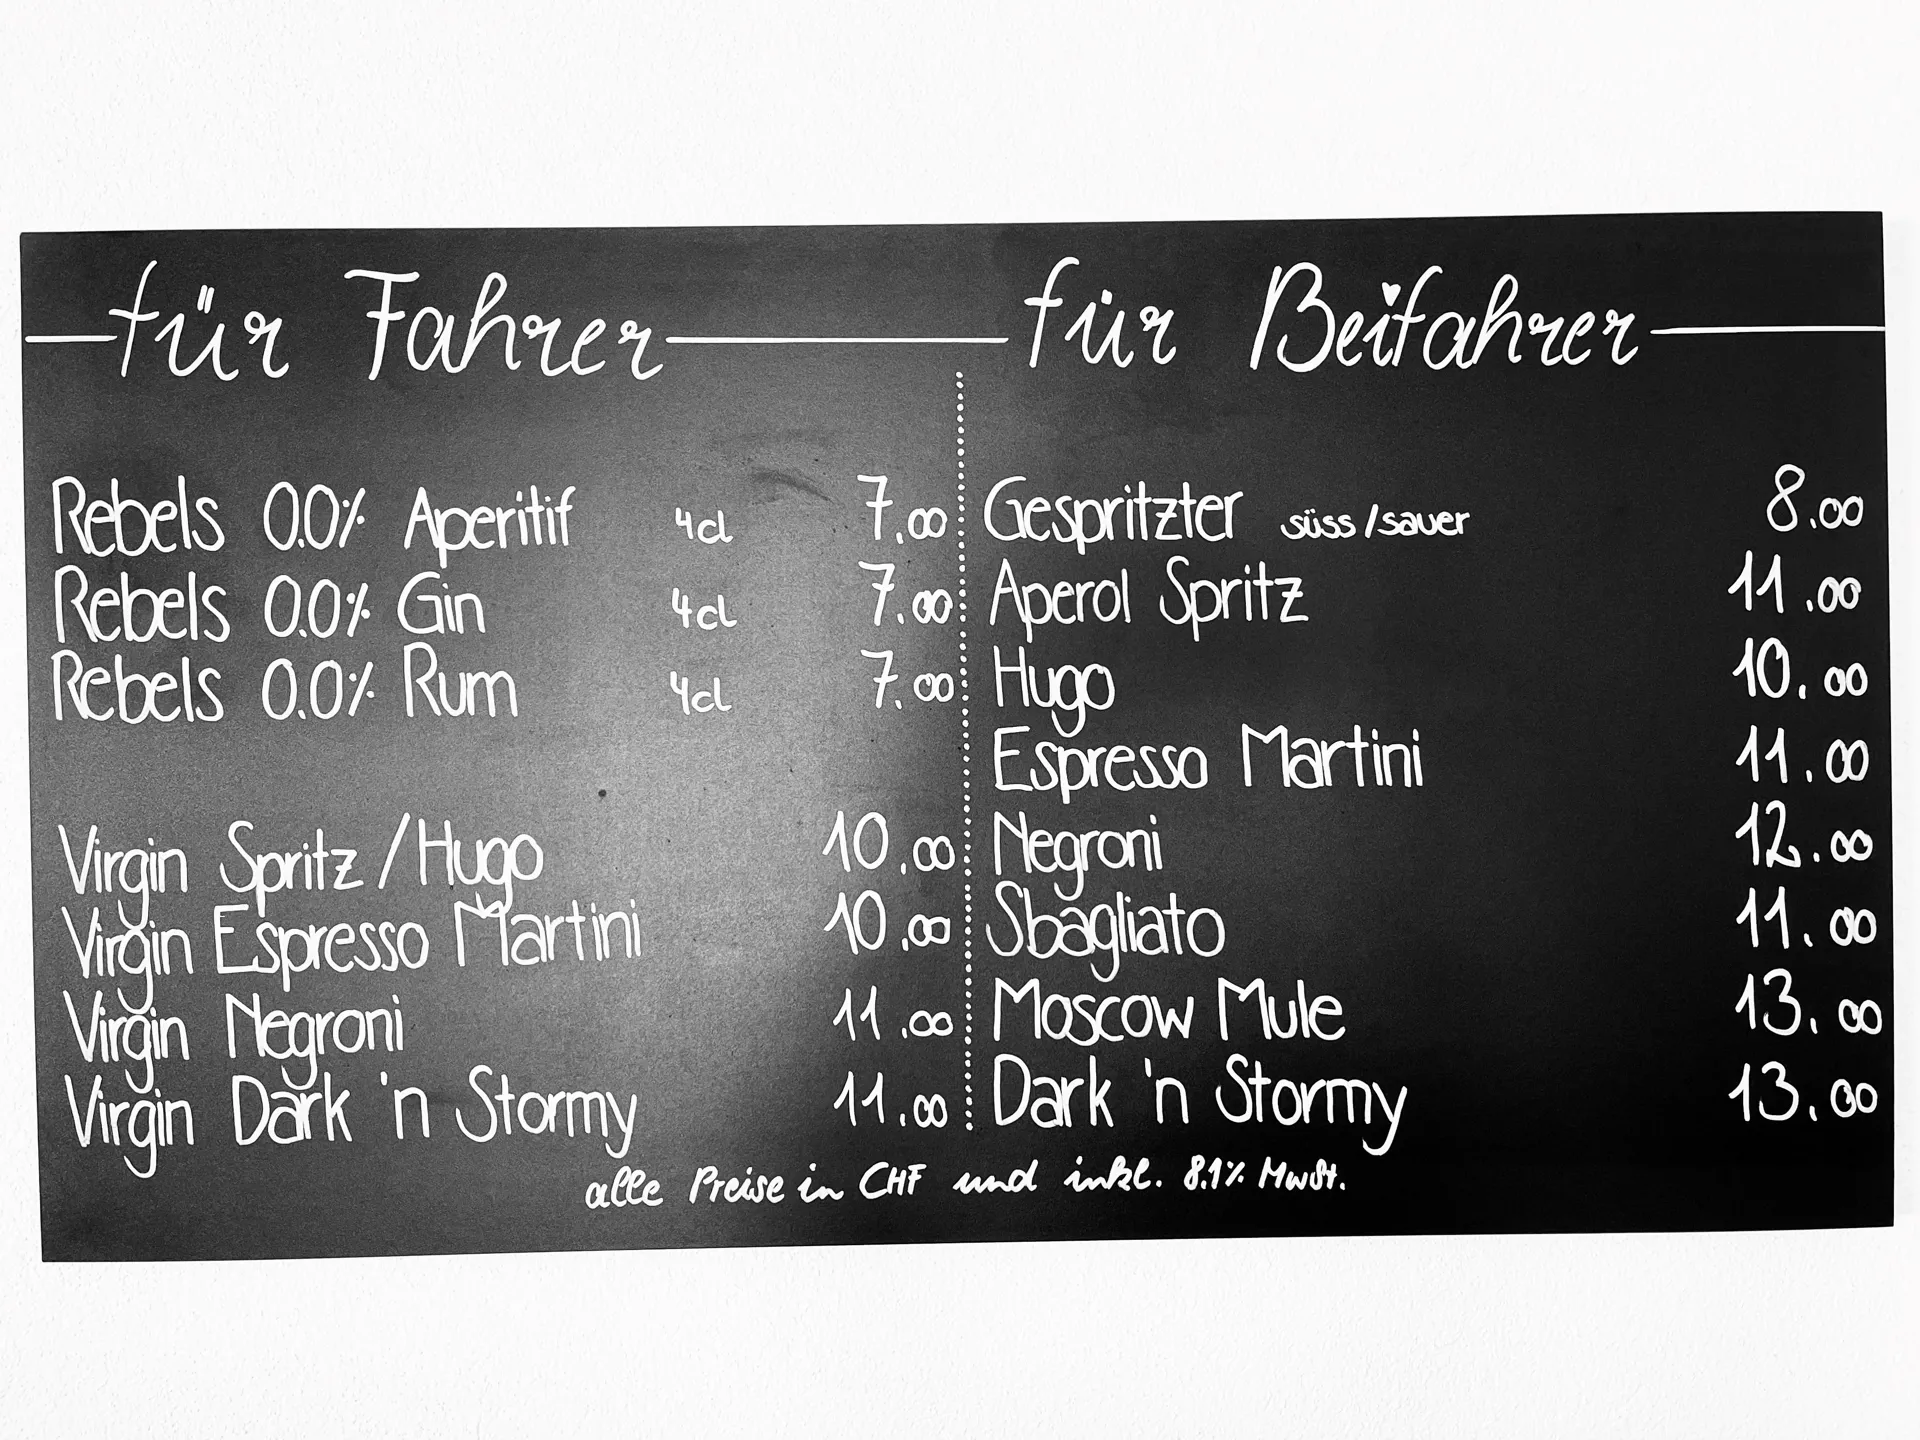 für Fahrer
Rebels 0.0% Aperitif 4cl 7.00
Rebels 0.0% Gin 4cl 7.00
Rebels 0.0% Rum 4cl 7.00
Virgin Spritz / Hugo 10.00
Virgin Espresso Martini 10.00
Virgin Negroni 11.00
Virgin Dark 'n Stormy 11.00
für Beifahrer
Gespritzter süss / sauer 8.00
Aperol Spritz 11.00
Hugo 10.00
Espresso Martini 11.00
Negroni 12.00
Sbagliato 11.00
Moscow Mule 13.00
Dark 'n Stormy 13.00
alle Preise in CHF und inkl. 8.1% MwSt.